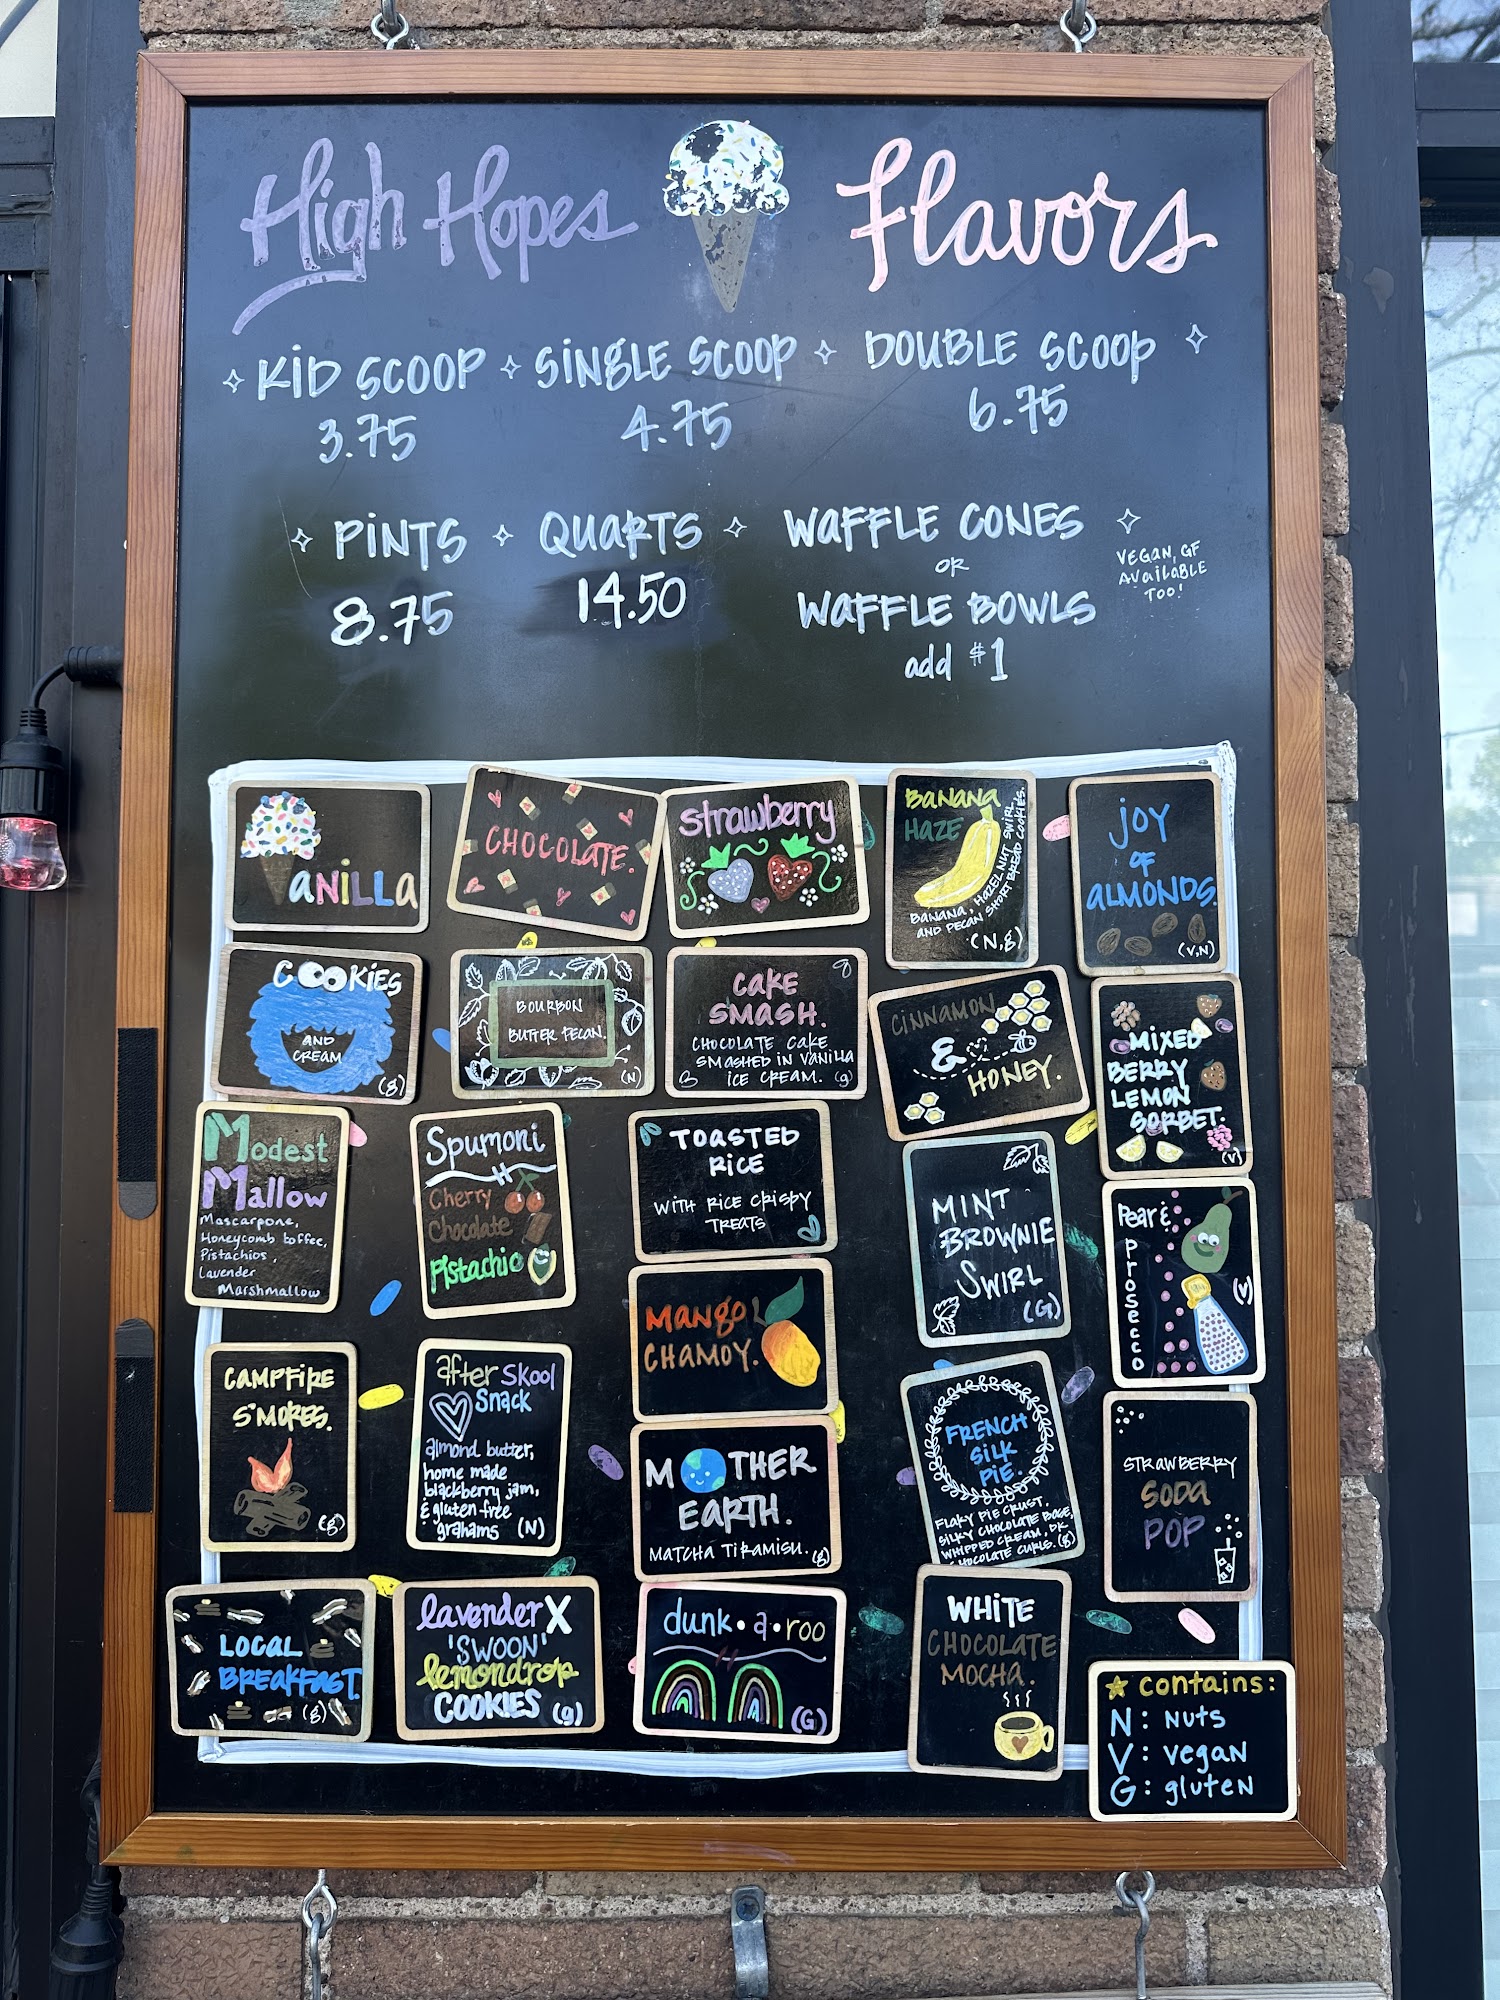 High Hopes Flavors
KID SCOOP
3.75
SINGLE SCOOP
4.75
DOUBLE SCOOP
6.75
PINTS
8.75
QUARTS
14.50
WAFFLE CONES
OR
WAFFLE BOWLS
add $1
VEGAN, GF
AVAILABLE
TOO!
VANILLA
CHOCOLATE.
strawberry
BANANA
HAZE
BANANA, HAZELNUT SWIRL
AND PECAN SHORTBREAD COOKIES.
(N,g)
JOY
OF
ALMONDS.
(V,N)
COOKIES
AND
CREAM
(g)
BOURBON
BUTTER PECAN.
(N)
CAKE
SMASH.
CHOCOLATE CAKE
SMASHED IN VANILLA
ICE CREAM. (g)
CINNAMON
&
HONEY.
MIXED
BERRY
LEMON
SORBET.
(V)
Modest
Mallow
Mascarpone,
Honeycomb toffee,
Pistachios,
Lavender
Marshmallow
Spumoni
Cherry
Chocolate
Pistachio
TOASTED
RICE
WITH RICE CRISPY
TREATS
MINT
BROWNIE
SWIRL
(G)
Pear &
Prosecco
(V)
MANGO
CHAMOY.
CAMPFIRE
S'MORES.
(g)
after Skool
Snack
almond butter,
home made
blackberry jam,
& gluten-free
grahams (N)
MOTHER
EARTH.
MATCHA TIRAMISU. (g)
FRENCH
SILK
PIE.
FLAKY PIE CRUST,
SILKY CHOCOLATE BASE,
WHIPPED CREAM, DK
CHOCOLATE CURLS. (g)
STRAWBERRY
SODA
POP
LOCAL
BREAKFAST.
(g)
lavender X
'SWOON'
lemondrop
COOKIES (g)
dunk•a•roo
(G)
WHITE
CHOCOLATE
MOCHA.
contains:
N: NUTS
V: vegan
G: gluten